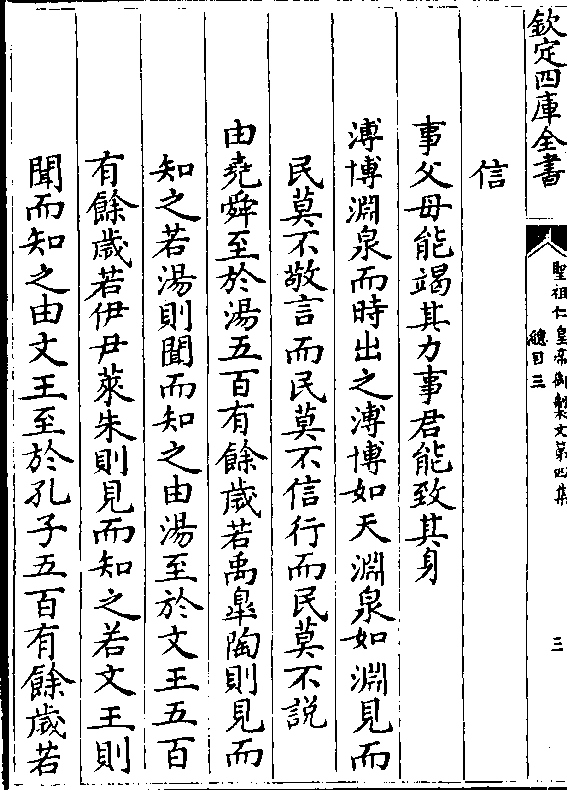 欽定四庫全書
聖祖仁皇帝御製文第四集
總目三
三
信
事父母能竭其力事君能致其身
溥博淵泉而時出之溥博如天淵泉如淵見而
民莫不敬言而民莫不信行而民莫不說
由堯舜至於湯五百有餘歲若禹臯陶則見而
知之若湯則聞而知之由湯至於文王五百
有餘歲若伊尹萊朱則見而知之若文王則
聞而知之由文王至於孔子五百有餘歲若